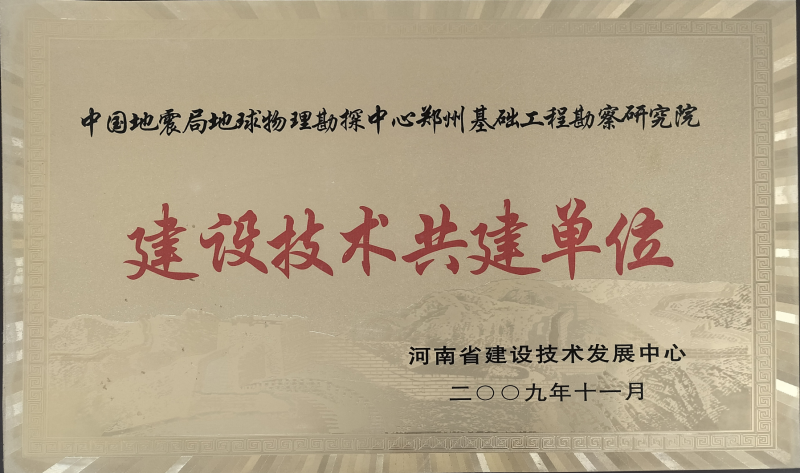 中国地震局地球物理勘探中心郑州基础工程勘察研究院
建设技术共建单位
河南省建设技术发展中心
二〇〇九年十一月